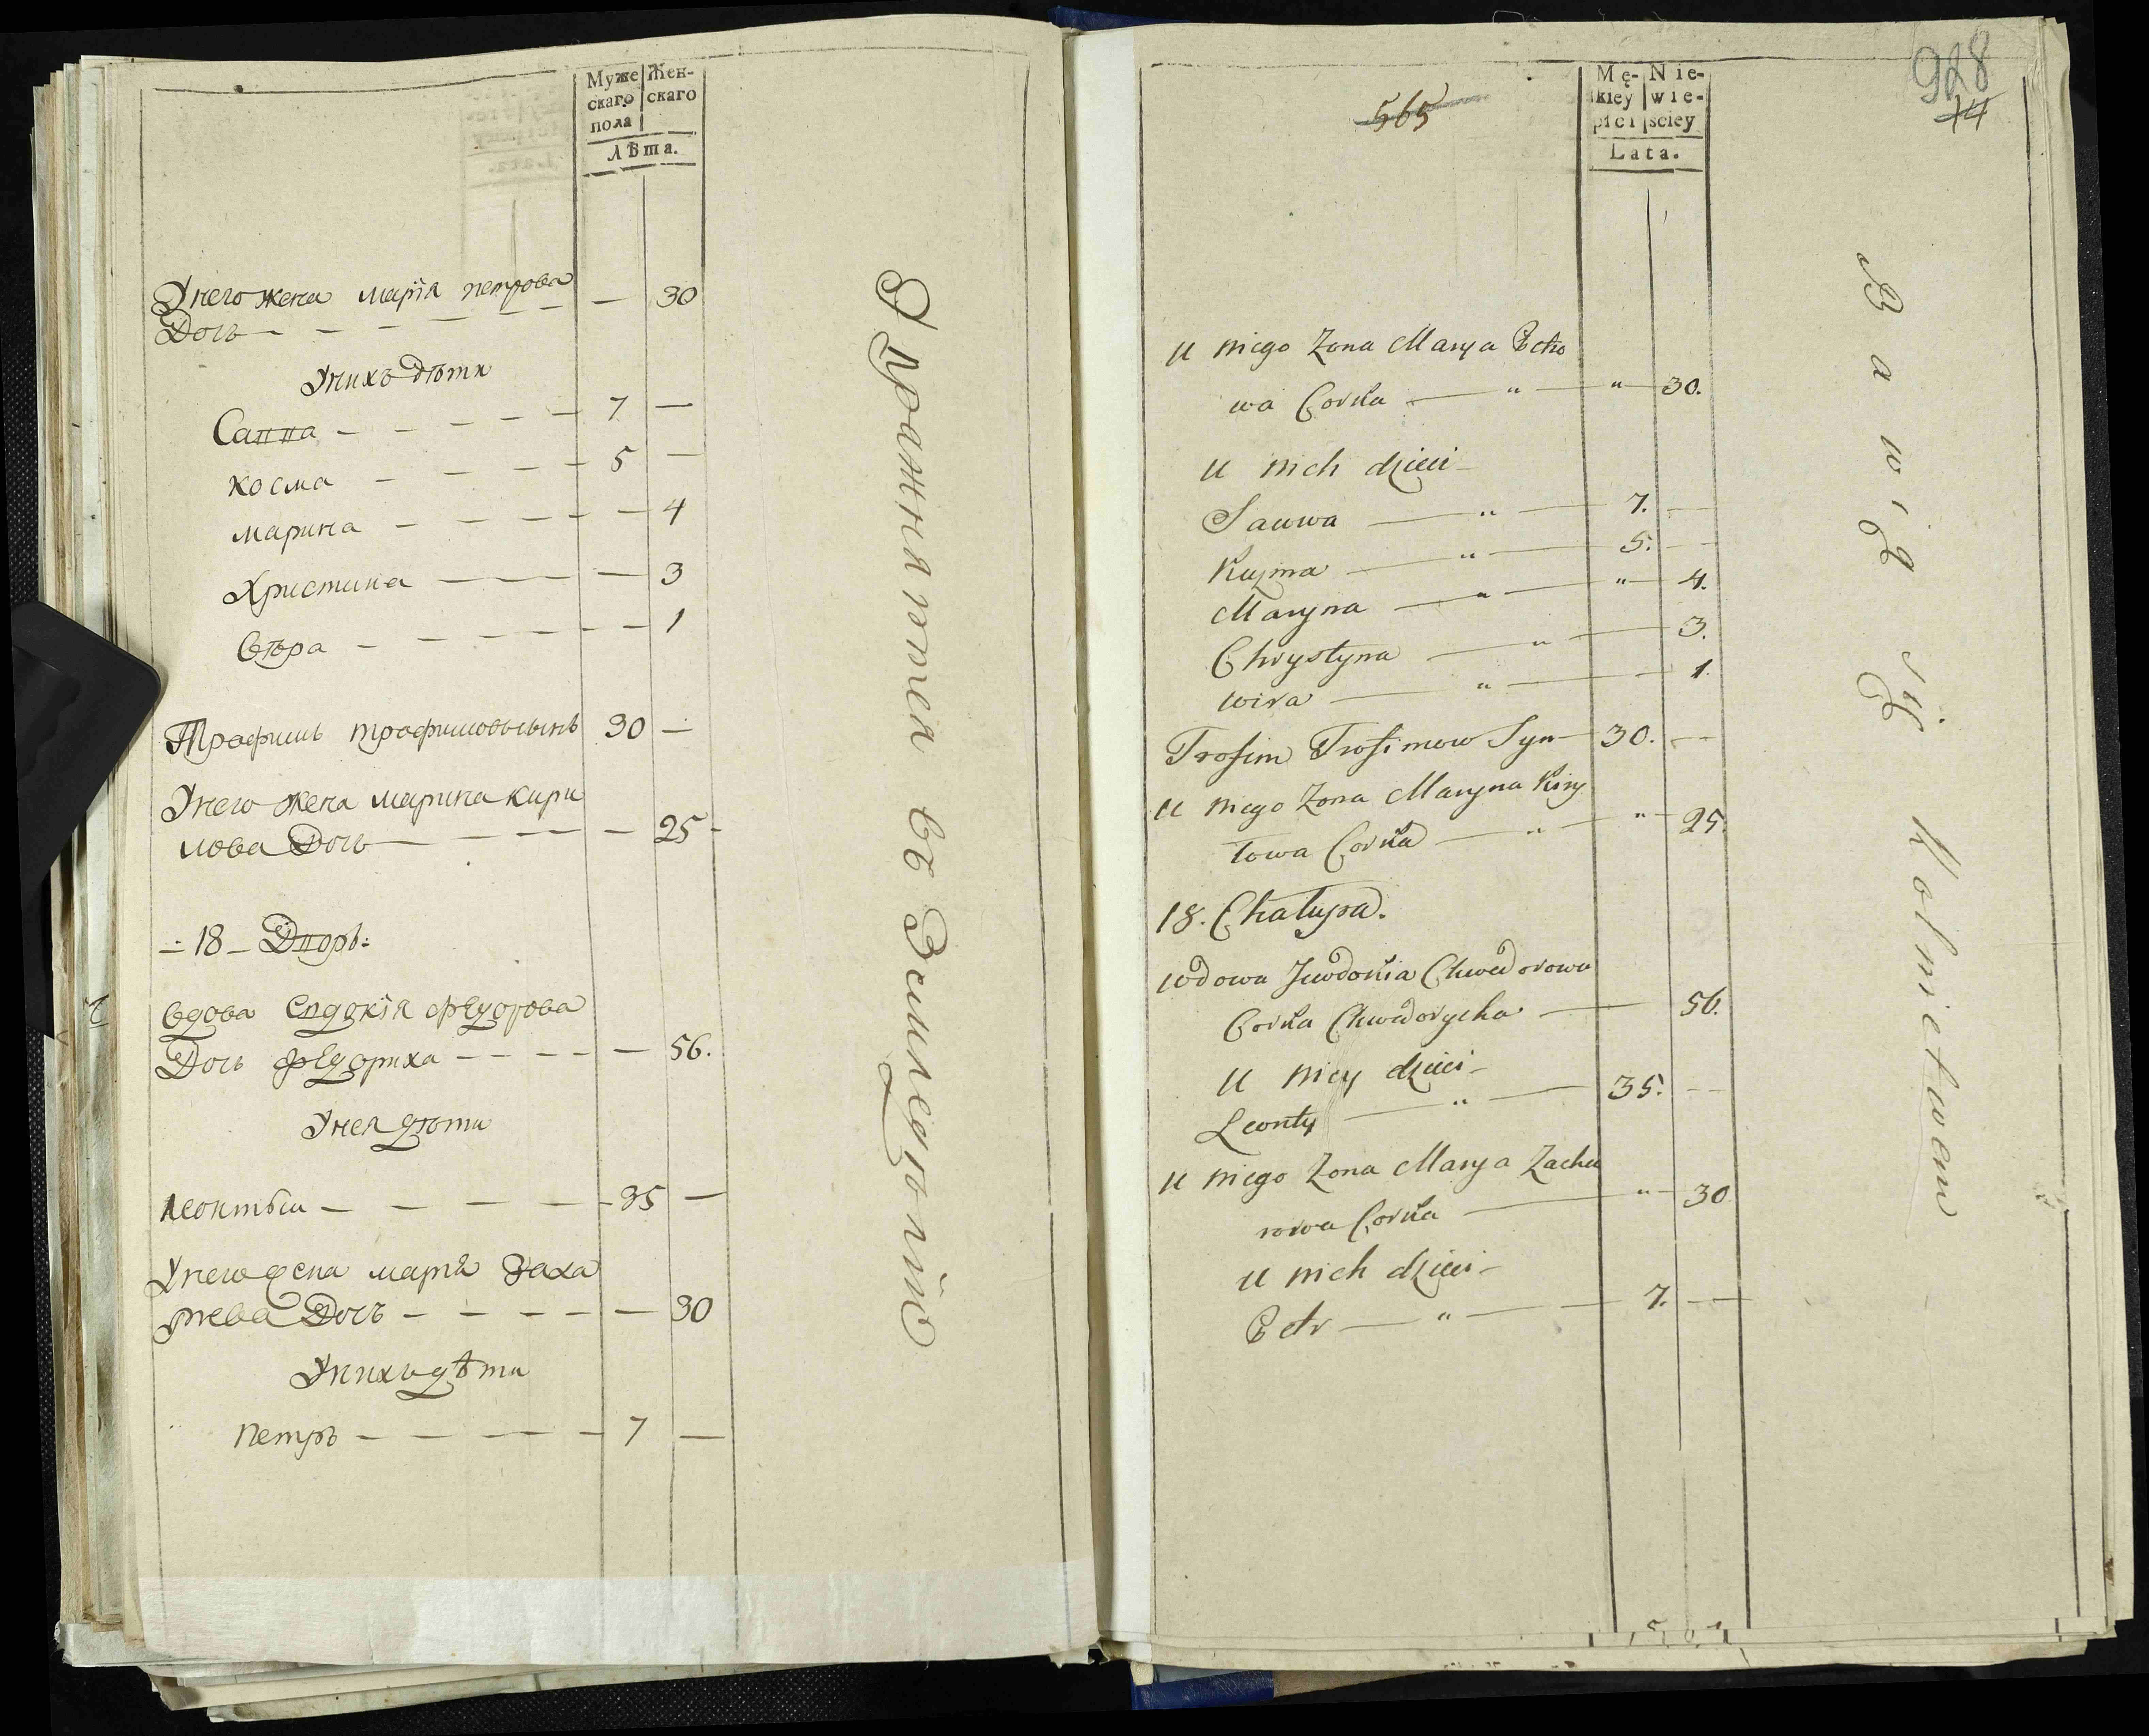 Муже Жен-
скаго скаго
пола
Лѣта.
Унего жена марїя петрова
Дочь — — 30
Унихъ дѣти
Савва — 7 —
косма — 5 —
марина — — 4
Христина — — 3
вѣра — — 1
Трафимъ трафимовъ сынъ 30 —
Унего жена марина кири
лова Дочь — — 25
18 Дворъ:
вдова Евдокїя федорова
Дочь федориха — — 56.
Унея дѣти
леонтѣи — 35 —
Унего жена марїя Заха
рьева Дочь — — 30
Унихъ дѣти
петръ — 7 —
Упражняются въ Земледѣлїи
565
928
14
Mę- Nie-
skiey wie-
płci sciey
Lata.
u niego Zona Marya Petro
wa Corka — " — " — 30.
u nich dzieci
Sauwa — " — 7. —
Kuzma — " — 5. —
Maryna — " — " — 4.
Chrystyna — " — 3.
wira — " — 1.
Trofim Trofimow Syn — 30. —
u niego Zona Maryna Kiry
łowa Corka — " — " — 25.
18. Chałupa.
wdowa Jwdokia Chwedorowa
Corka Chwedorycha — 56.
u niey dzieci
Leonty — " — 35. —
u niego Zona Marya Zacha
rowa Corka — " — 30
u nich dzieci
Petr — " — 7. —
Bawią się Rolnictwem